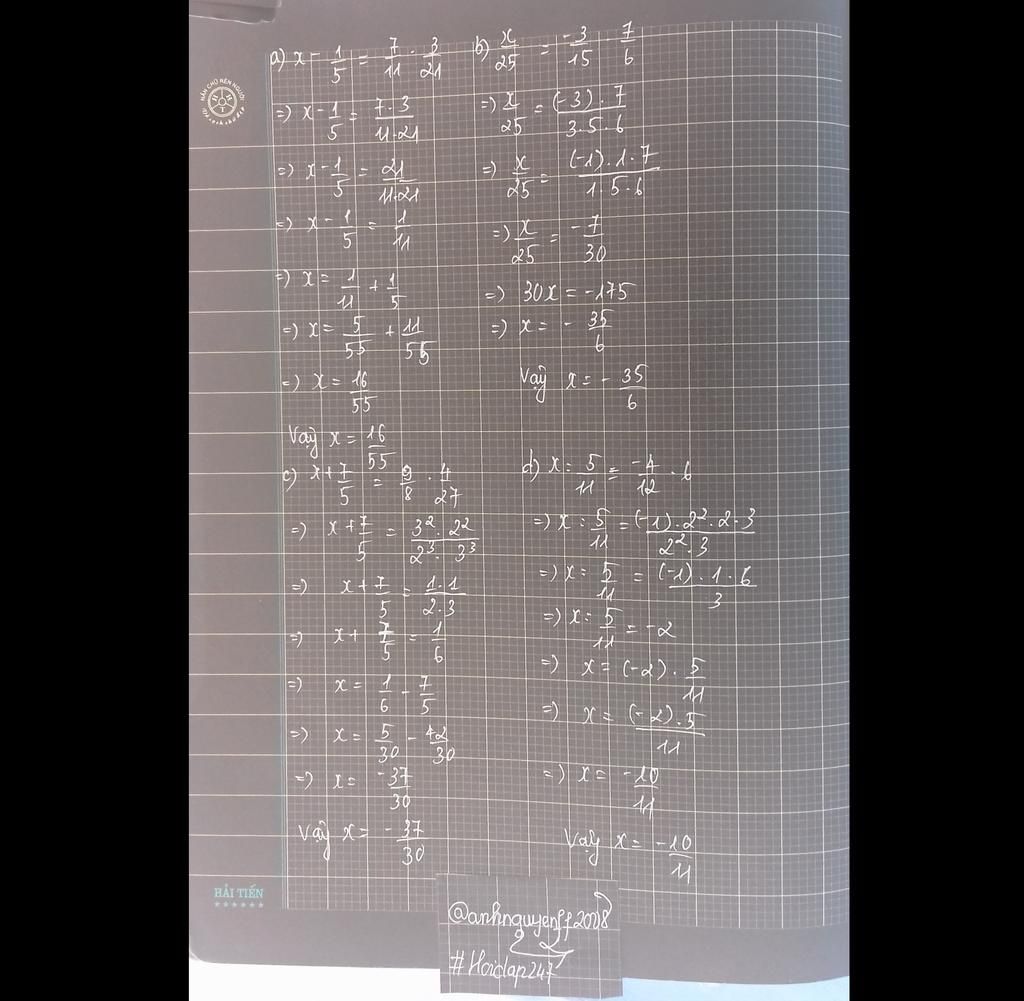 a) x - 1/5 = 7/11 . 3/21
=) x - 1/5 = 7.3/11.21
=) x - 1/5 = 21/11.21
=) x - 1/5 = 1/11
=) x = 1/11 + 1/5
=) x = 5/55 + 11/55
=) x = 16/55
Vậy x = 16/55
b) x/25 = -3/15 . 7/6
=) x/25 = (-3).7/3.5.6
=) x/25 = (-1).1.7/1.5.6
=) x/25 = -7/30
=) 30x = -175
=) x = - 35/6
Vậy x = - 35/6
c) x + 7/5 = 9/8 . 4/27
=) x + 7/5 = 3².2²/2³.3³
=) x + 7/5 = 1.1/2.3
=) x + 7/5 = 1/6
=) x = 1/6 - 7/5
=) x = 5/30 - 42/30
=) x = -37/30
Vậy x = -37/30
d) x : 5/11 = -4/12 . 6
=) x : 5/11 = (-1).2².2.3/2².3
=) x : 5/11 = (-1).1.6/3
=) x : 5/11 = -2
=) x = (-2) . 5/11
=) x = (-2).5/11
=) x = -10/11
Vậy x = -10/11
HẢI TIẾN
@anhnguyenff2008
#Hoidap247